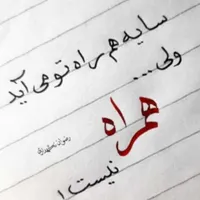 سایه هم راه تو می آید
ولی...
همراه
نیست!